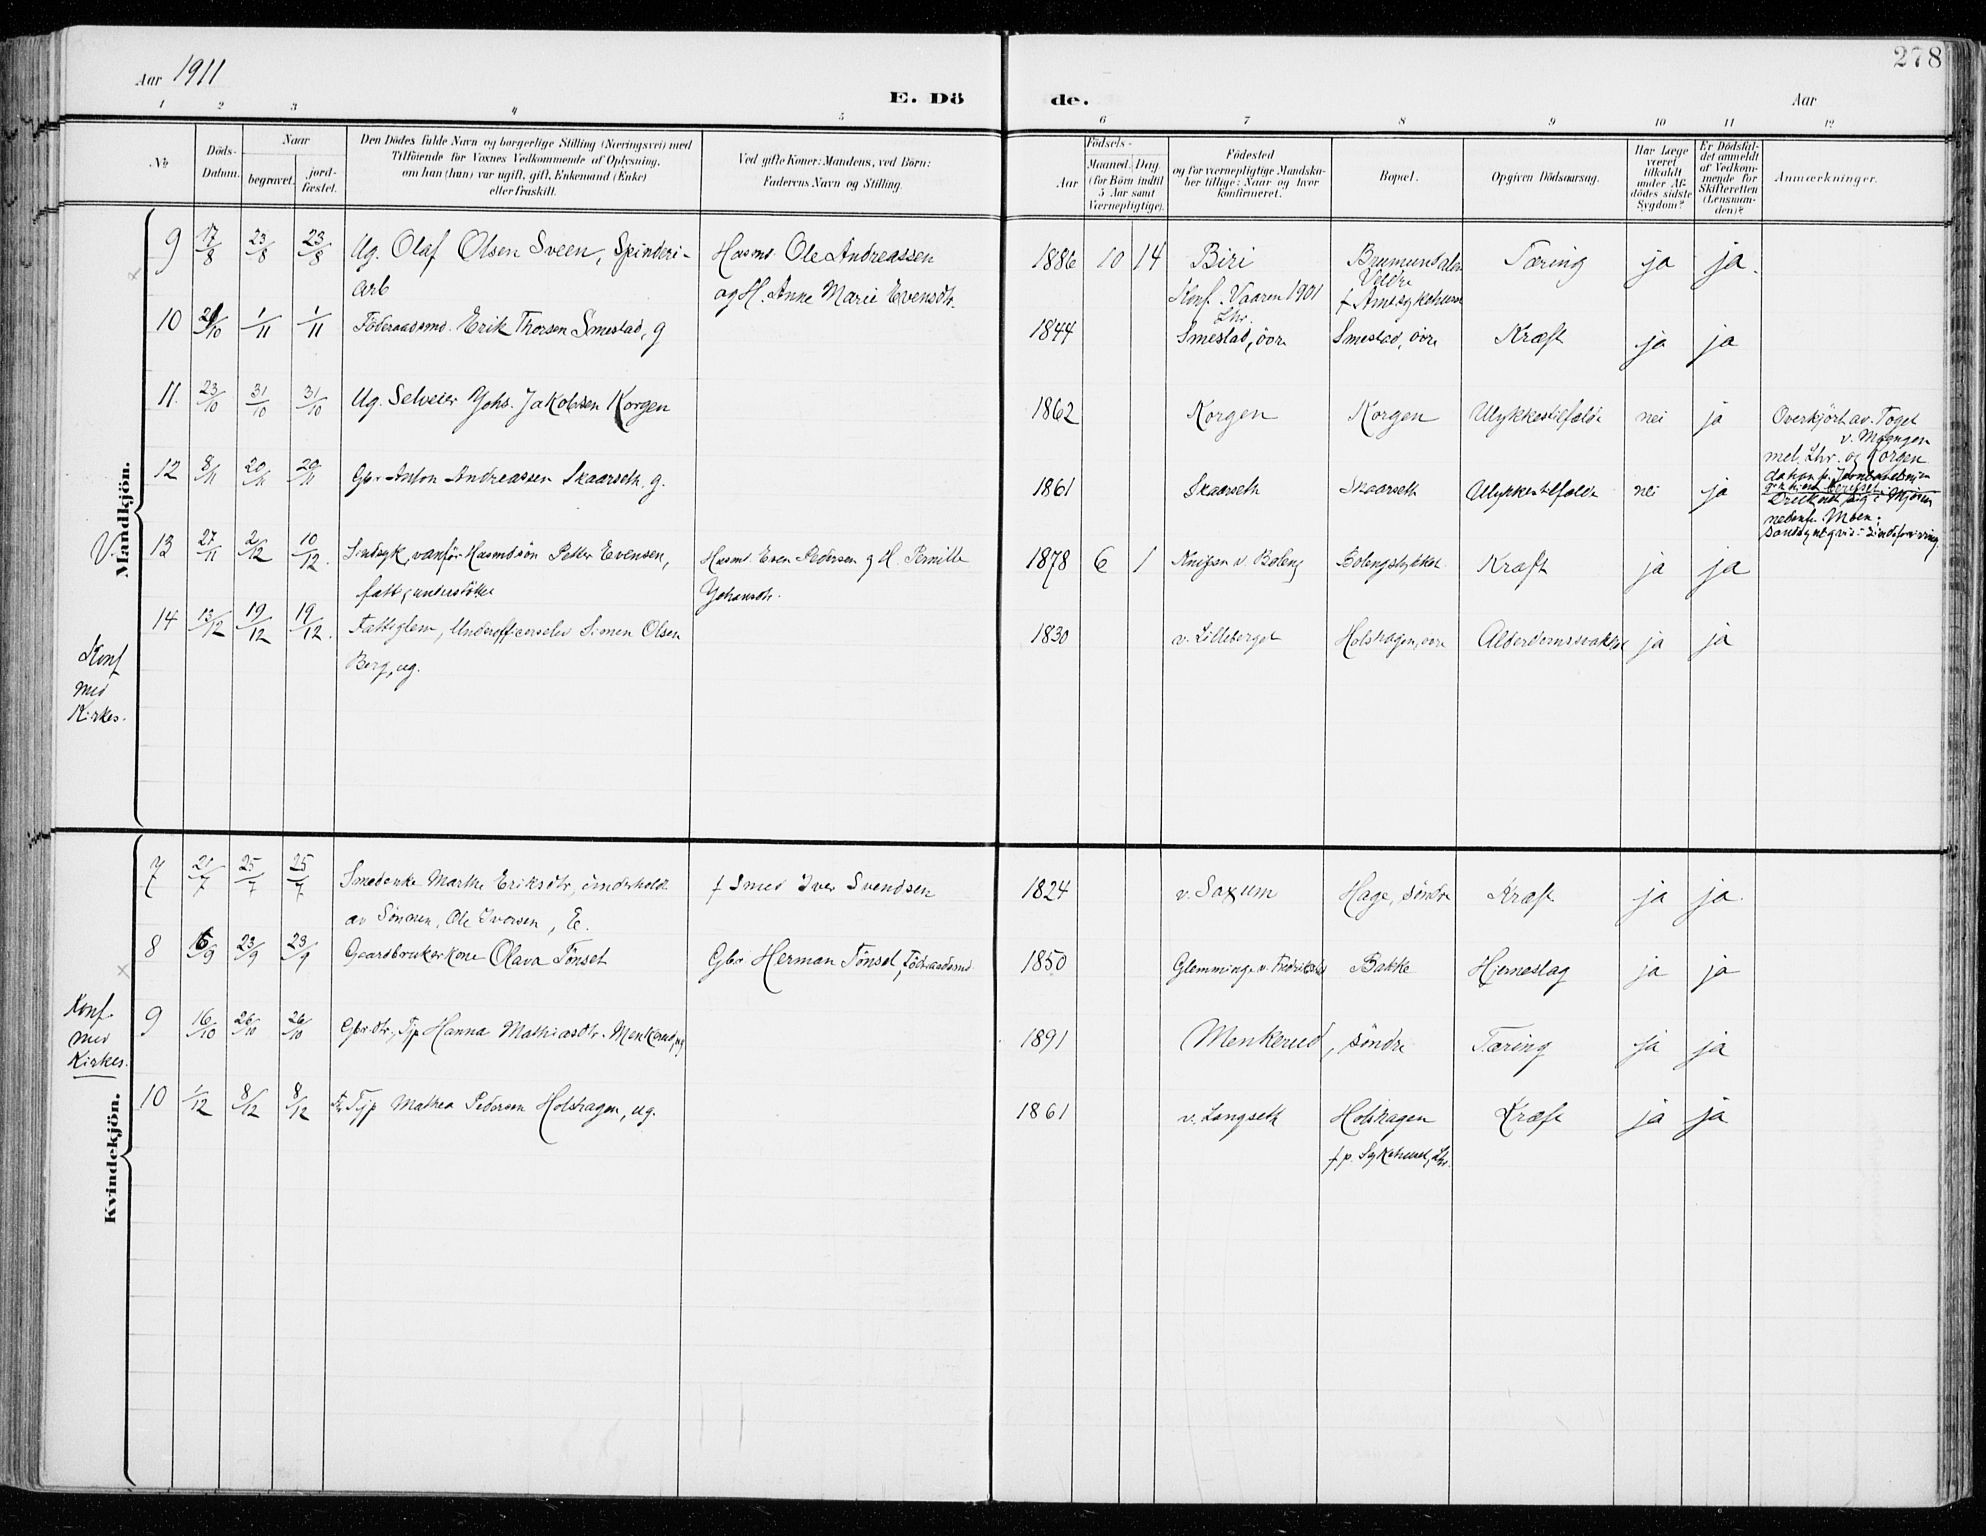 278
Aar 1911
E. Dö de.
Aar
1 2 3 4 5 6 7 8 9 10 11 12
No
Döds-Datum.
Naar
begravet.
jord-fæstet.
Den Dödes fulde Navn og borgerlige Stilling (Næringsvei) med
Tilföiende for Voxnes Vedkommende af Oplysning,
om han (hun) var ugift, gift, Enkemand (Enke)
eller fraskilt.
Ved gifte Koner: Mandens, ved Börn:
Faderens Navn og Stilling.
Födsels-
Aar
Maaned. Dag
(for Börn indtil
5 Aar samt
Værnepligtige).
Födested
og for værnepligtige Mandska-
ber tillige: Naar og hvor
konfirmeret.
Bopæl.
Opgiven Dödsaarsag.
Har Læge
været
tilkaldt
under Af-
dödes sidste
Sygdom?
Er Dödsfal-
det anmeldt
af Vedkom-
mende for
Skifteretten
(Lensman-
den)?
Anmærkninger.
Mandkjön.
9 17/8 23/8 23/8 Ug. Olaf Olsen Sveen, Spinderi- Husmd. Ole Andreassen 1886 10 14 Biri Brumundalen Tæring ja ja.
arb og H. Anne Marie Evensdtr. Konf. Vaaren 1901 Veldre
Lhr. † Amtssykehuset
10 /10 1/11 1/11 Föderaadsmd. Erik Thorsen Smestad, g 1844 Smestad, övre Smestad, övre Kræft ja ja
11. 23/10 31/10 31/10 Ug. Selveier Johs. Jakobsen Korgen 1862 Korgen Korgen Ulykkestilfælde nei ja Overkjört av Toget
v. Mæhgen
mel. Lhr. og Korgen
12 8/11 20/11 20/11 Gbr. Anton Andreassen Skaarseth. g. 1861 Skaarseth Skaarseth Ulykkestilfælde nei ja
i Mjösen
nedenfr Moen;
V. 13 27/11 2/12 10/12. Sindsyk, vanför Husmdsön Petter Evensen, Husmd. Even Pedersen g H. Pernille 1878 6 1 v. Boleng Bolengstykket Kræft ja ja
fatt. understöttet Johansdtr.
14 13/12 19/12 19/12. Fattiglem, Underofficerselev Simen Olsen 1830 v. Lilleberget Holshagen, övre Alderdomssvakhet ja ja
Berg, ug.
Konf
med
Kirkes.
Kvindekjön.
7 21/7 25/7 25/7 Smedenke Marthe Eriksdtr, underholdt † Smed Iver Svendsen 1824 v. Saxum Hage, söndre Kræft ja ja.
av Sönnen, Ole Iversen, E.
8 /9 23/9 23/9 Gaardbrukerkone Olava Tönset Gbr Herman Tönset, Föderaadsmd 1850 Glemminge v. Fredrikstad Bakke Hjerneslag ja ja
Konf.
med
Kirkes.
9 16/10 26/10 26/10 Gbr.dtr., Tjp Hanna Mathiasdtr. Menkerud, ug 1891 Menkerud, söndre Tæring ja ja
10 1/12 8/12 8/12 Tjp Mathea Pedersen Holshagen, ug. 1861 v. Langseth Holshagen Kræft ja ja
† p. Sykehuset, Lhr.